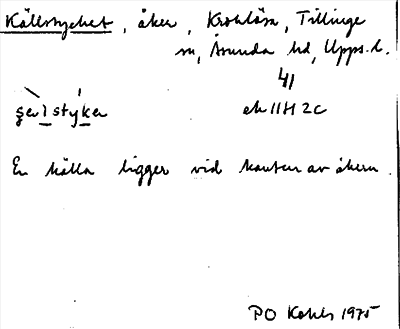 Källstycket, åker, Krohlösa, Tillinge
sn, Åsunda hd, Upps. l.
41
şeʌ̀lstýker ek 11H 2c
En källa ligger vid kanten av åkern.
PO Kahls 1975